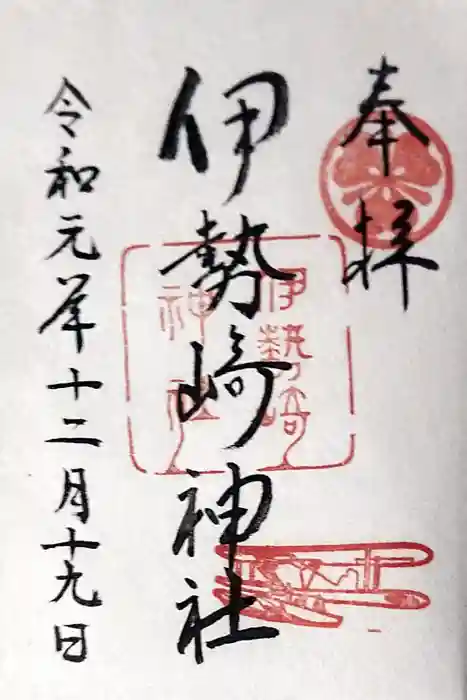 奉拝
伊勢崎神社
伊勢崎
神社
令和元年十二月十九日